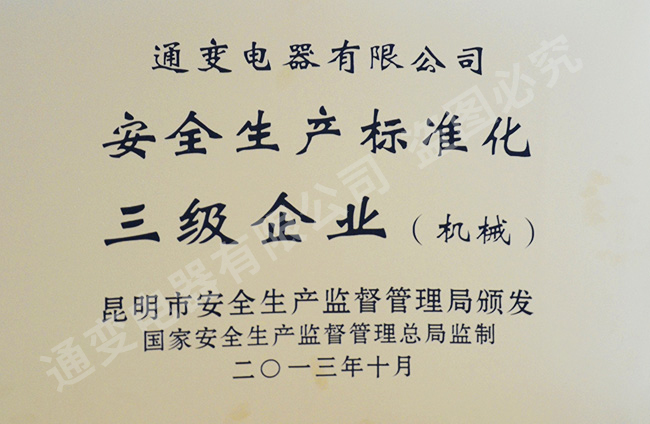 通变电器有限公司
安全生产标准化
三级企业（机械）
昆明市安全生产监督管理局颁发
国家安全生产监督管理总局监制
二〇一三年十月
通变电器有限公司 盗图必究